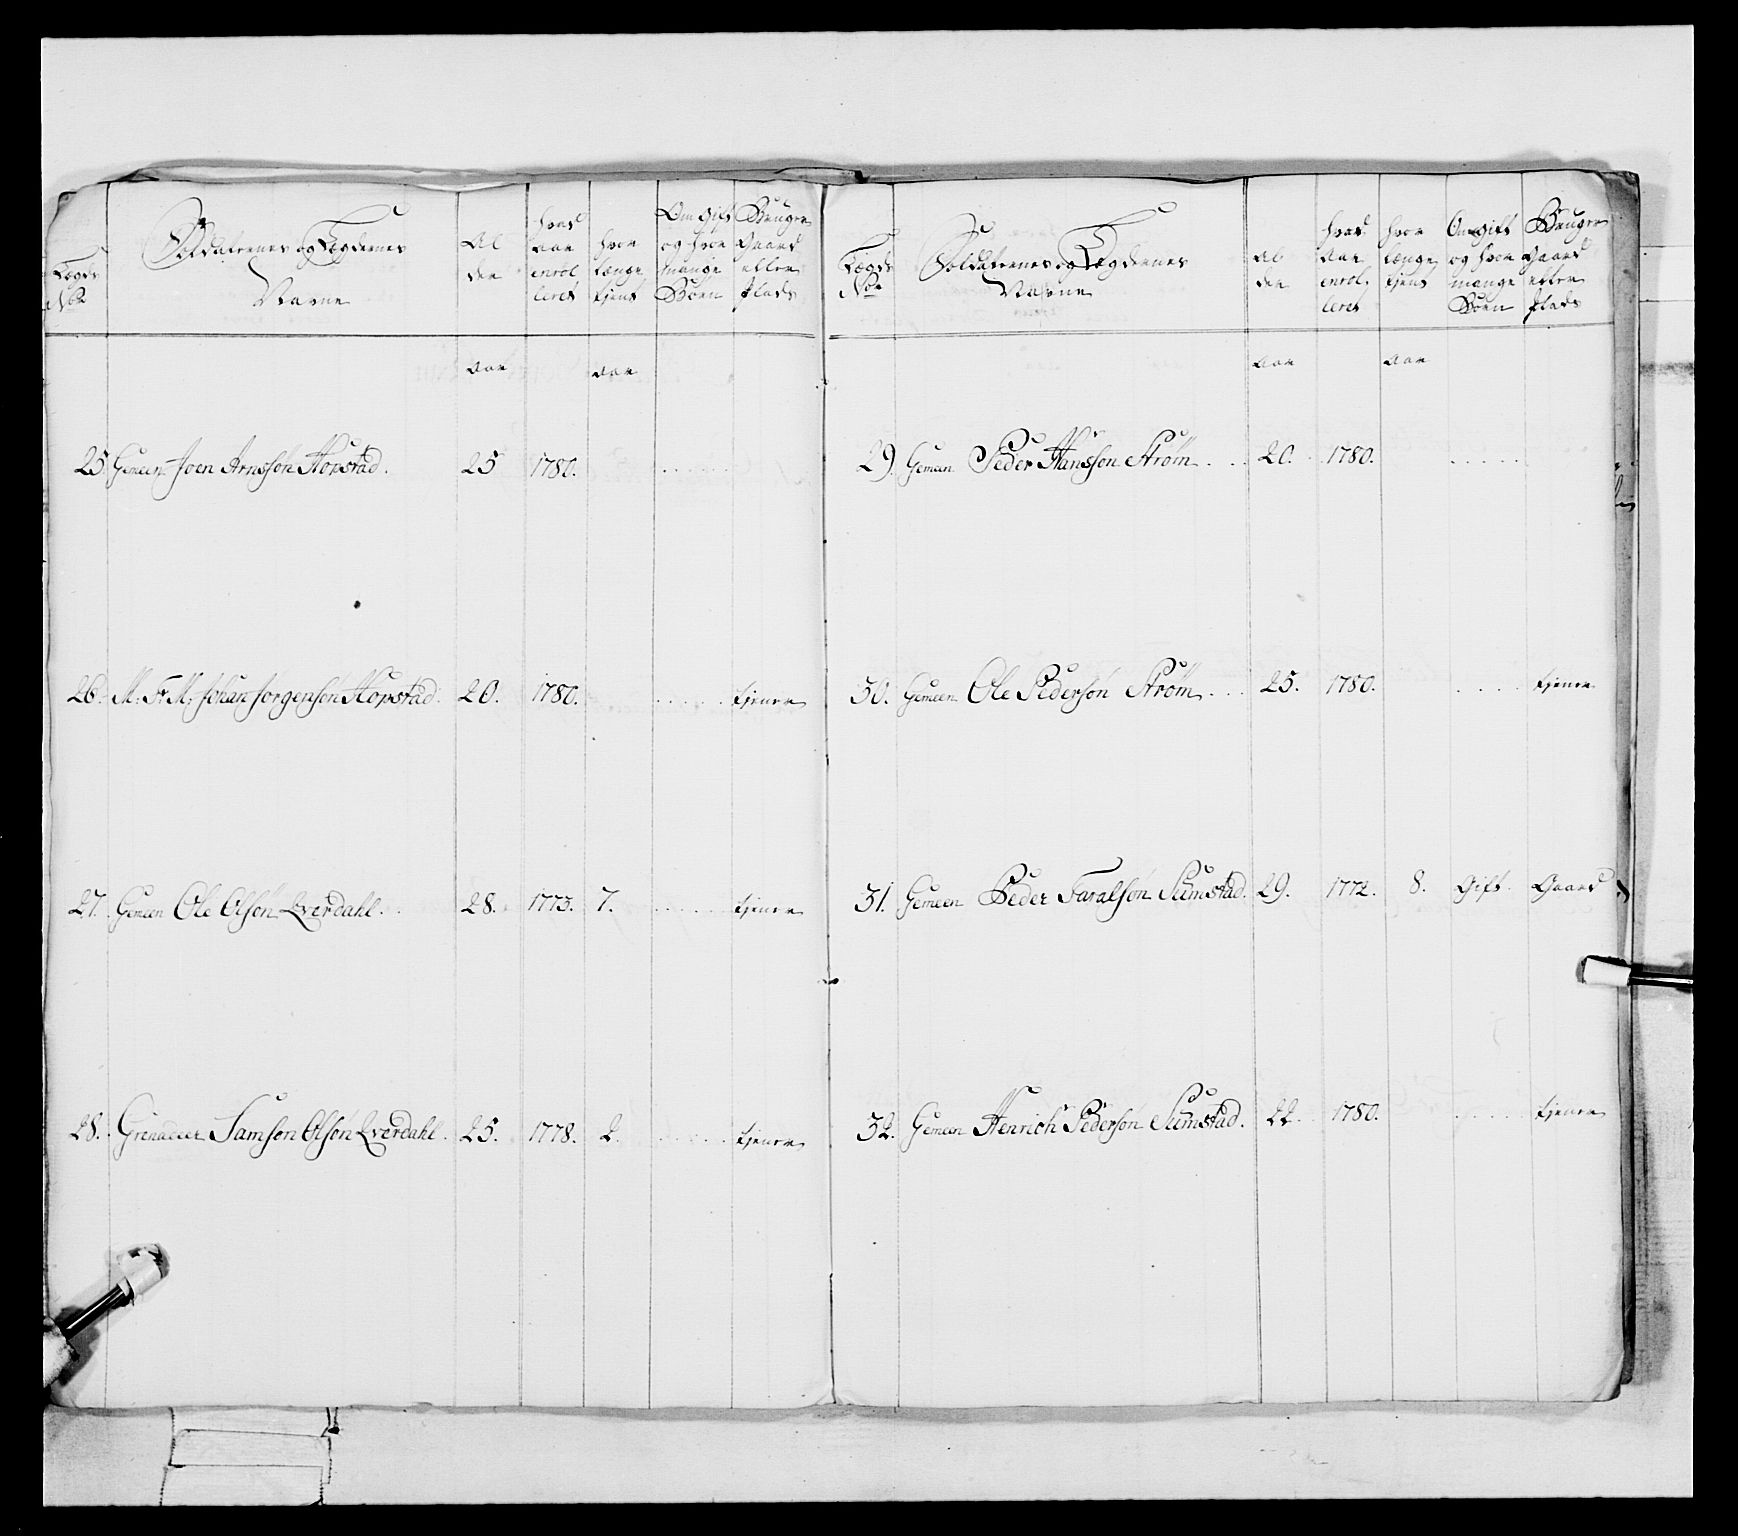 Lægds No
Soldaternes og Lægdernes Navne
Al der
hvad Aar enrol leret
hvor længe tjent
Om gift og hvor mange Børn
Bruger Gaard eller Plads
Aar Aar
25 Gemeen Joen Arnsson Hopstad. 25 1780. . . . . .
26. M: F: M: Johan Jorgensøn Hopstad. 20. 1780. . . . . . tjener
27. Gemeen Ole Olsøn Qverdahl. 28. 1773. 7. . . . . . tjener
28. Grenadeer Samson Olsøn Qverdahl. 25. 1778. 2. . . . . . tjener
Lægds No
Soldaternes og Lægdernes Navne
Al der
hvad Aar enrol. leret
hvor længe tjent
Om Gift og hvor mange Børn
Bruger Gaard eller Plads
Aar Aar
29. Gemeen Peder Hansson Strøm. 20. 1780. . . . . .
30. Gemeen Ole Pedersøn Strøm. 25. 1780. . . . . . tjener
31. Gemeen Peder Taralsøn Sumstad. 29. 1772. 8. Gift. Gaard
32. Gemeen Henrich Pedersøn Sumstad. 22 1780. . . . . . tjener